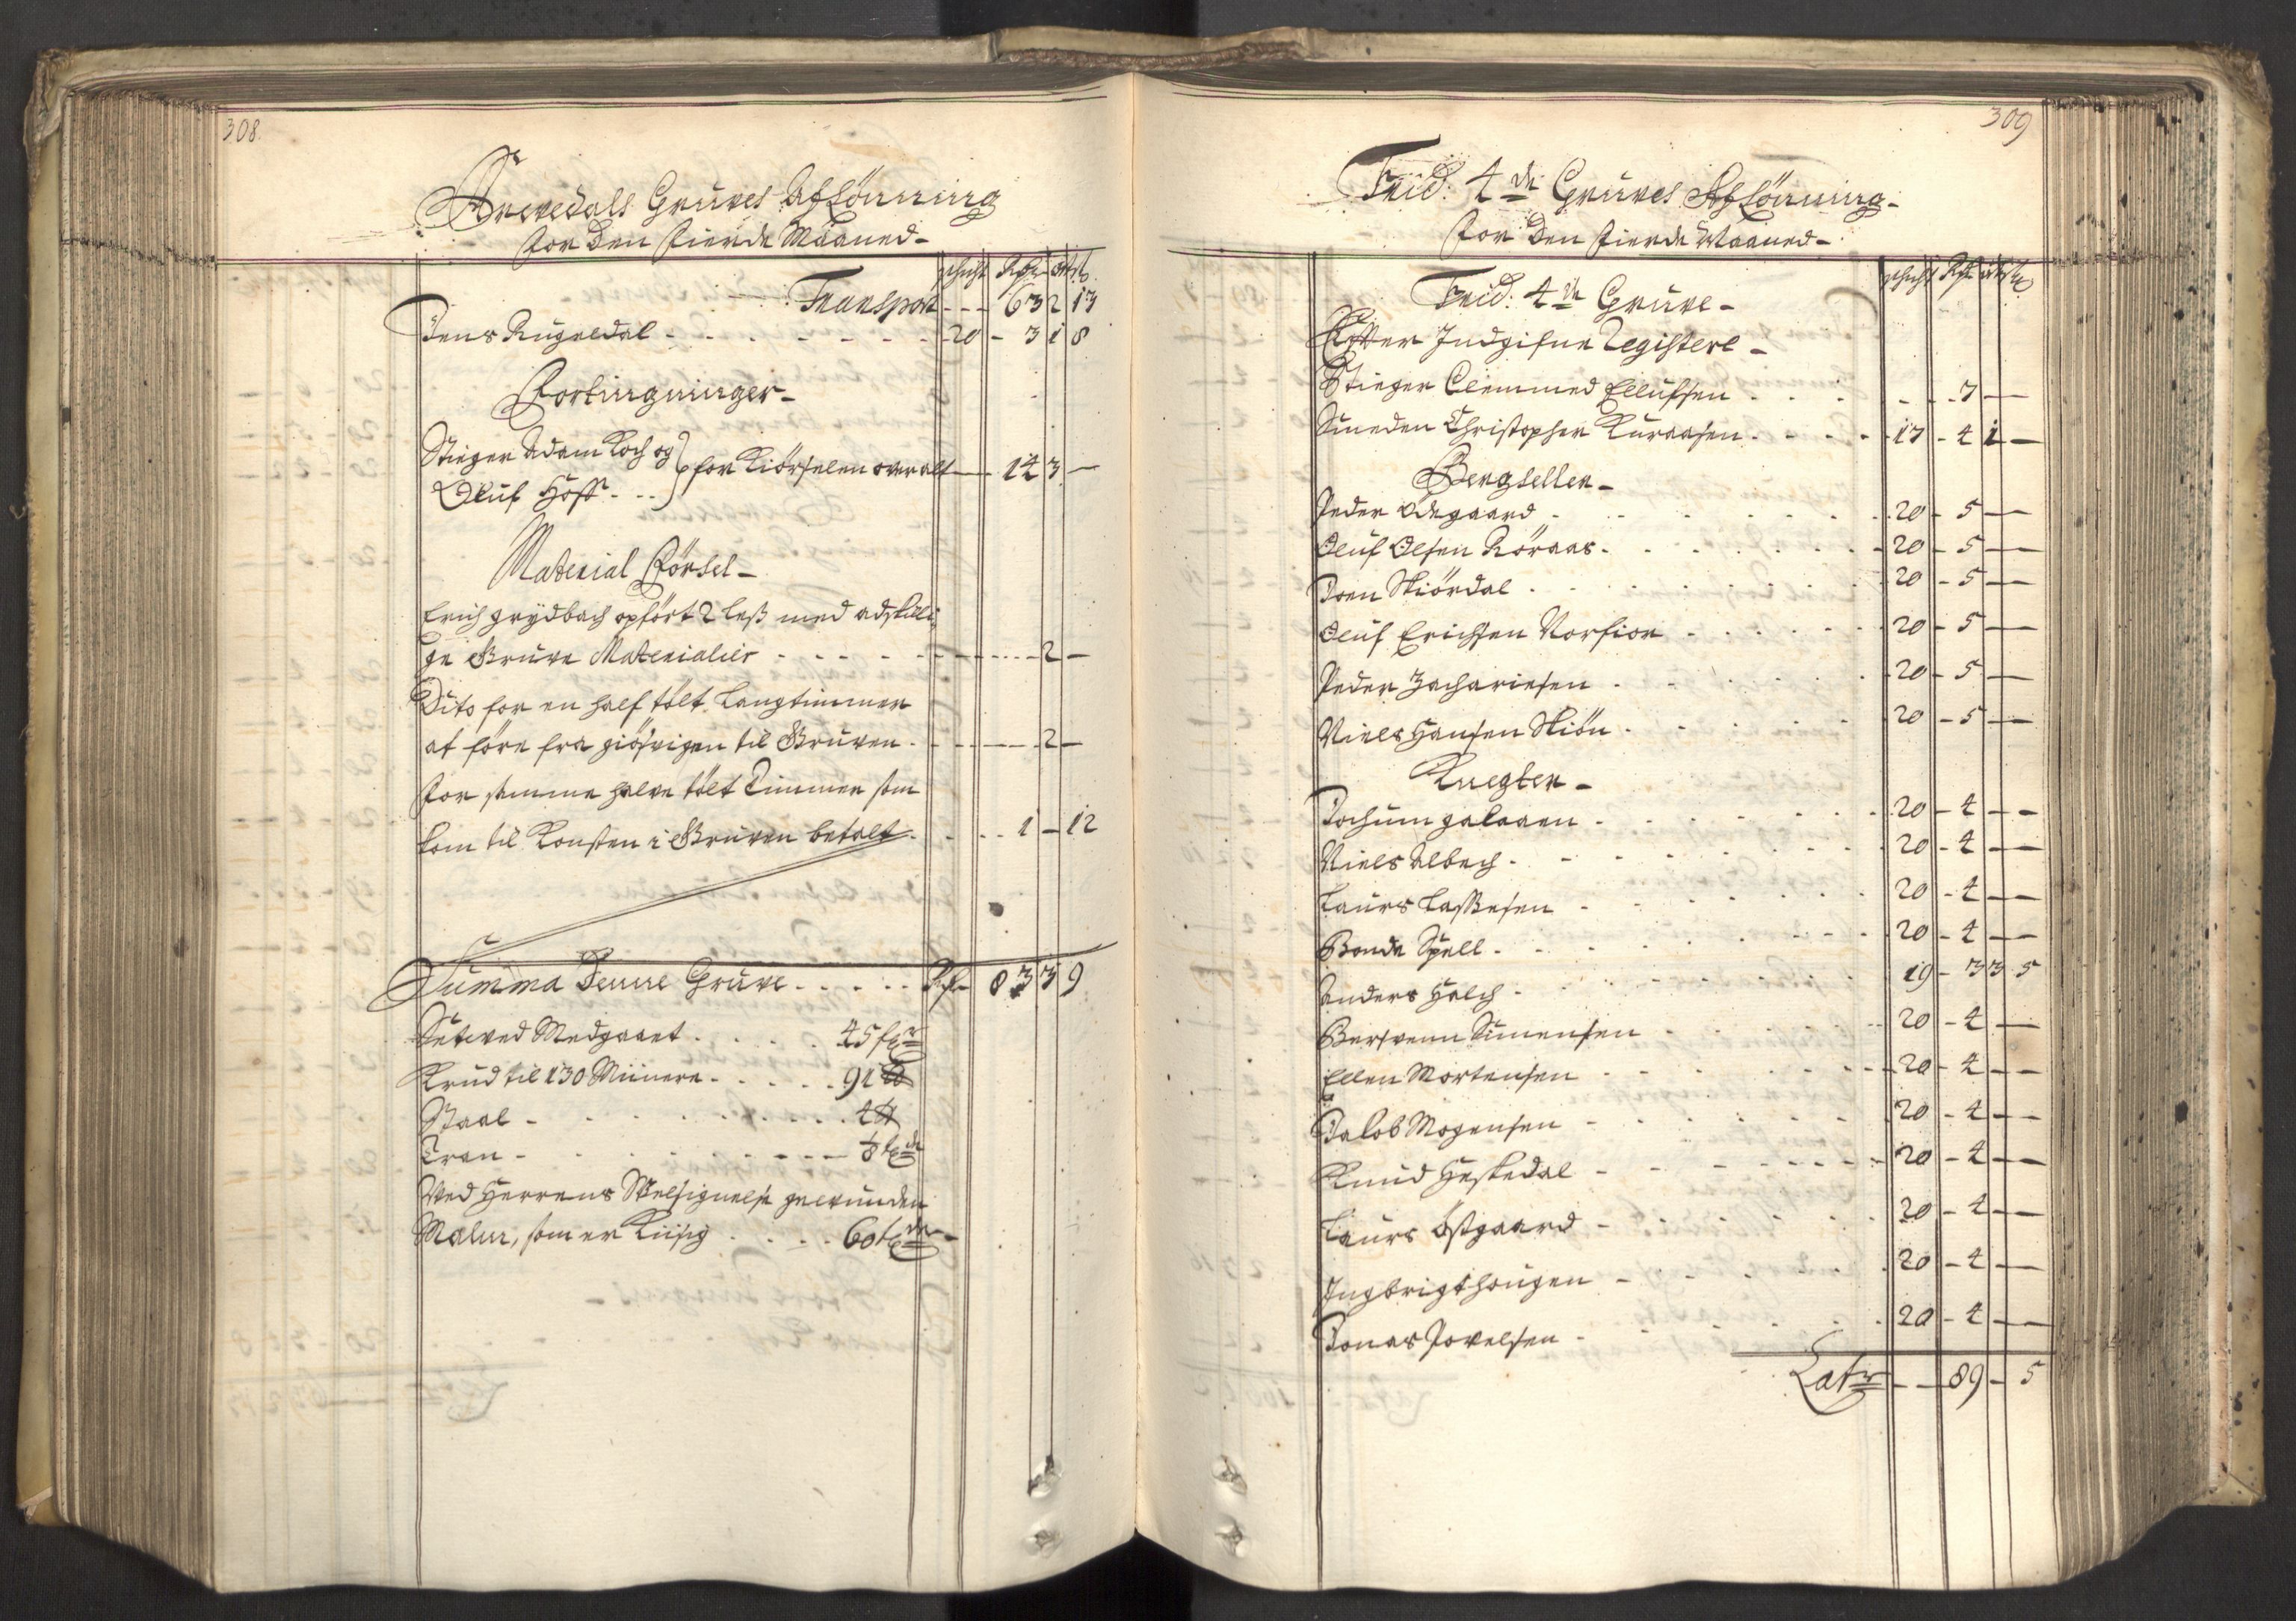 308.
Arvedals Gruves Aflönning
for den fierde Maaned-
schicht Rdr ort s
Transport - - - 63 2 13
Jens Rugeldal - - - 20 - 3 1 8
Fortingninger-
Stiger Adam Koch og
Oluf Hoff - - } for Kiörselen overalt — 14 3 —
Material Försel-
Erich grydbach opfört 2 lass med adskilli
ge Gruve Materialier - - - - 2 -
Dito for en half tölt Langtimmer
at före fra giösvigen til Gruven - - - 2 -
For samme halve tölt Timmer som
kom til Konsten i Gruven betalt - - - 1 - 12
Summa Denne Gruve - - - - Rdr 83 3 9
Seteved Medgaaet - - - - 45 f
Krud til 130 Minere - - - - 91 ℔
Staal - - - - 4 ℔
Tran - - - -
Ved Herrens Velsignelse gewunden
Malm, som er Kiisig - - - - 60 t
309
Frid: 4de Gruves Aflönning-
for den fierde Maaned-
schicht Rdr ort s
Frid: 4de Gruve-
Efter Indgifne Registere-
Stiger Clemmed Ellufsen - - - 7 —
Smeden Christopher Kuraasen - - - 17 - 4 1 —
Bergseller-
Peder Ödegaard - - - 20 - 5 —
Oluf Olsen Röraas - - - 20 - 5 —
Joen Skiördal - - - 20 - 5 —
Oluf Erichsen Norfior - - - 20 - 5 —
Peder Zachariesen - - - 20 - 5 —
Niels Hansen Skiön - - - 20 - 5 —
Knegter-
Jochum galaaen - - - 20 - 4 - -
Niels Albech - - - 20 - 4 —
Laurs Lassesen - - - 20 - 4 —
Bonde Spell - - - 20 - 4 —
Anders Holch - - - 19 - 3 3 5
Berswenn Simensen - - - 20 - 4 —
Ellen Mortensen - - - 20 - 4 - -
Jakob Mogensen - - - 20 - 4 - -
Knud Heskedal - - - 20 - 4 - -
Laurs Östgaard - - - 20 - 4 - -
Ingbrigt haugen - - - 20 - 4 —
Jonas Povelsen - - - 20 - 4 —
Latr - - 89 - 5